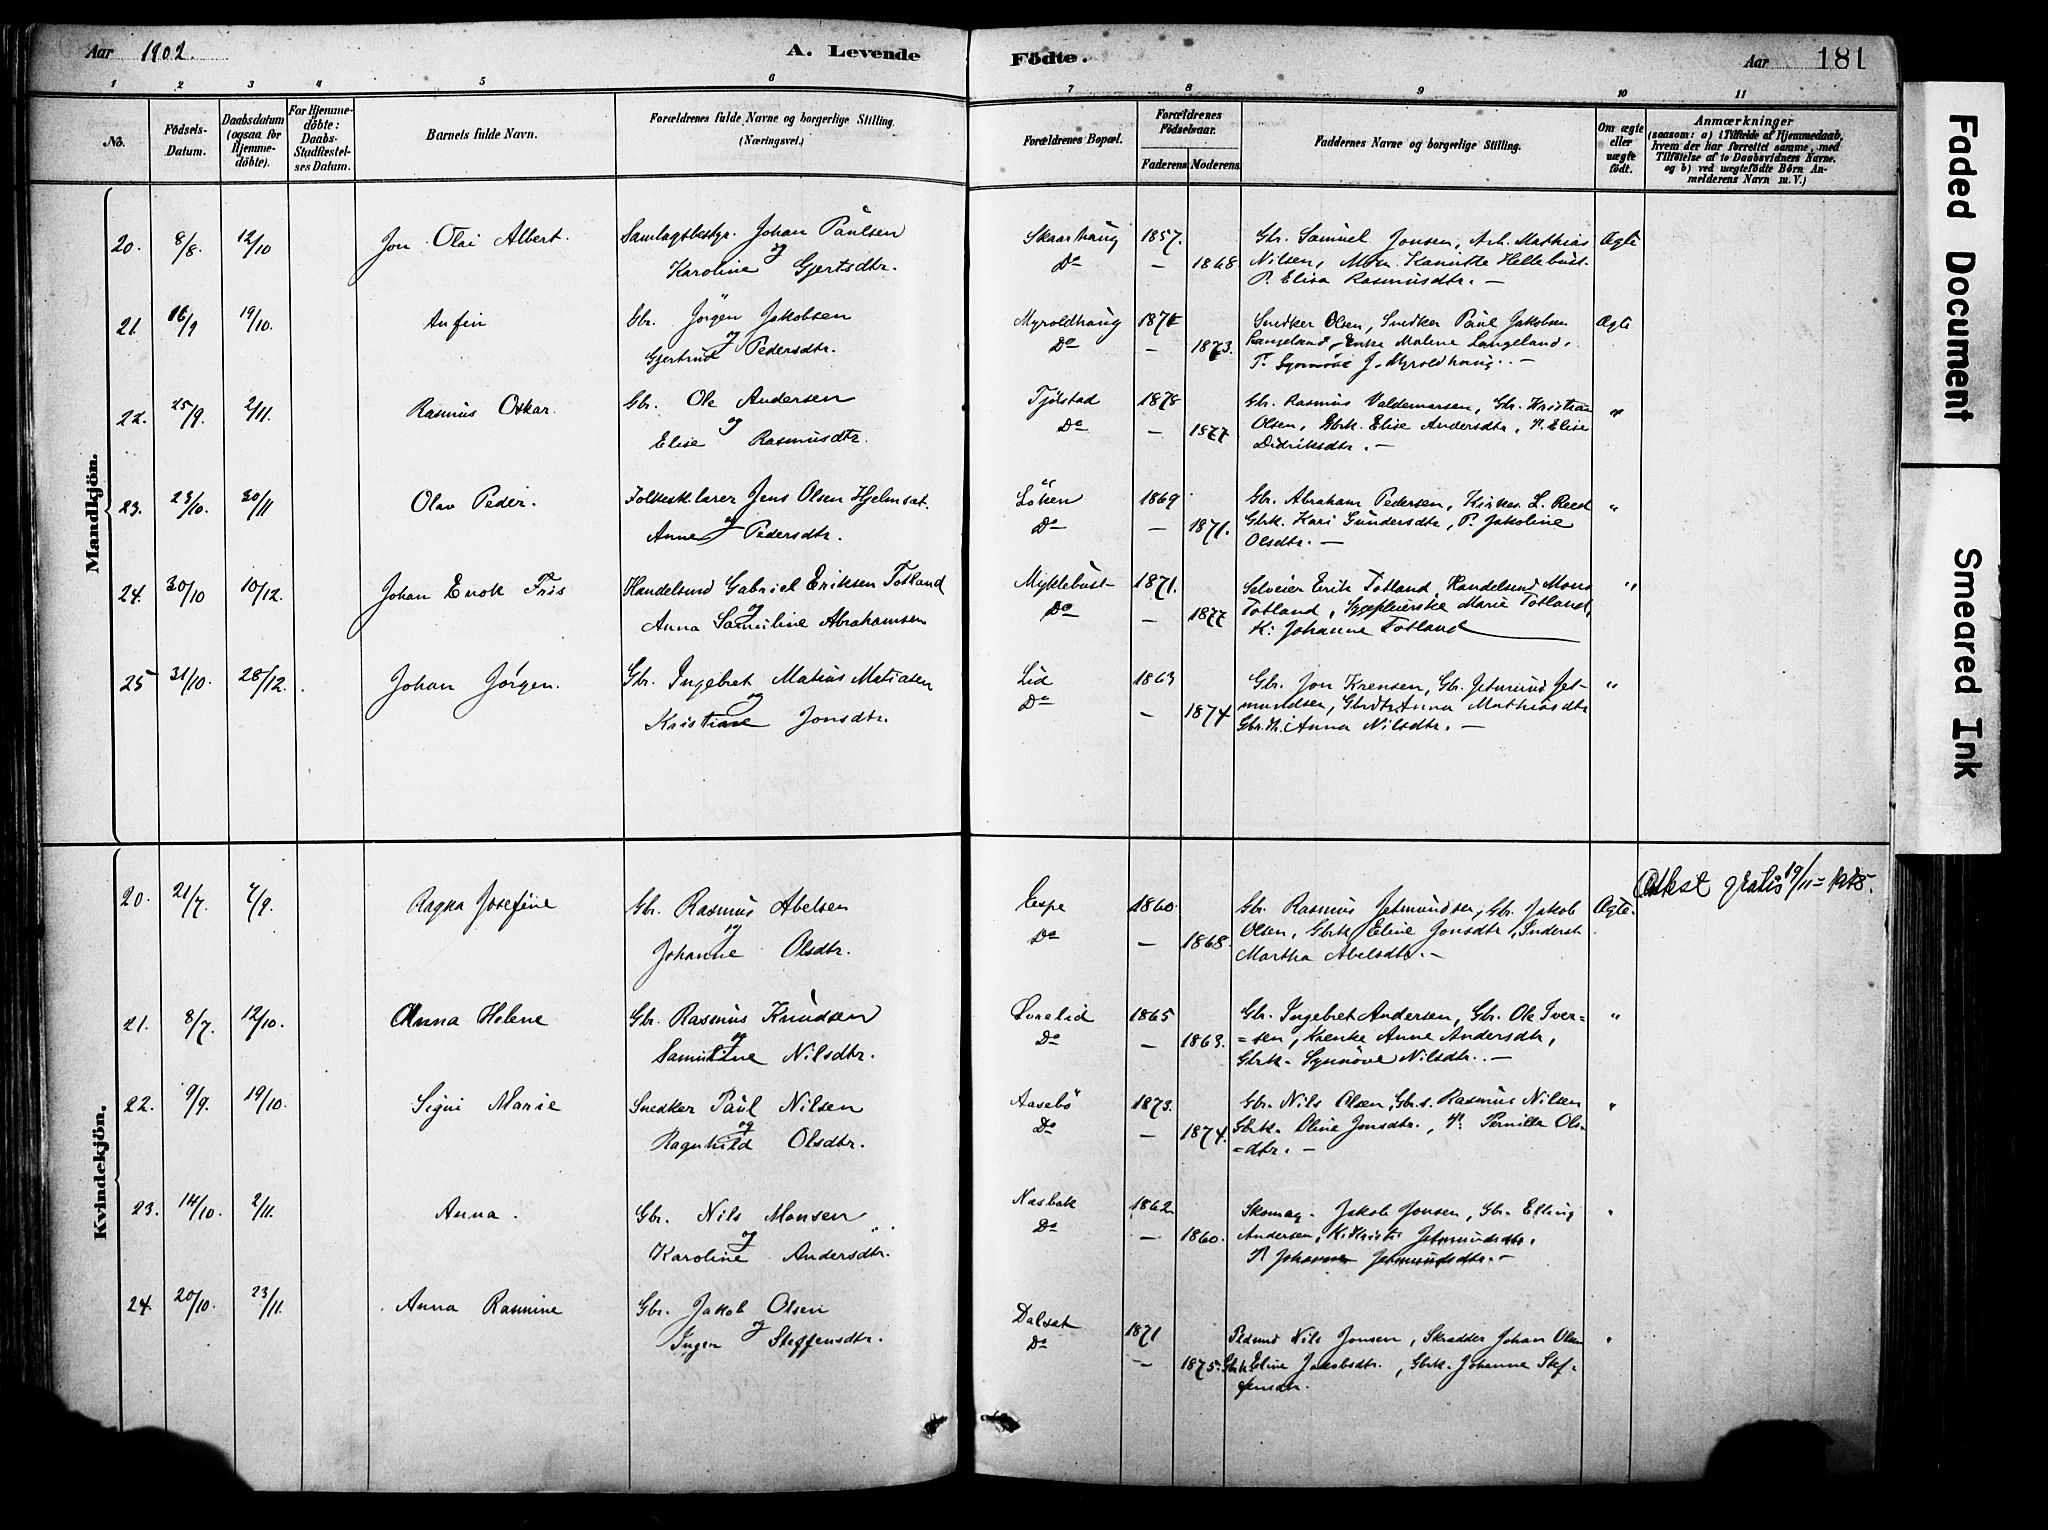 Aar 1902. A. Levende
Födte. Aar 181
1 2 3 4 5 6
7 8 9 10 11
No. Födsels-Datum. Daabsdatum (ogsaa for Hjemmedöbte). For Hjemmedöbte: Daabs-Stadfæstelses Datum. Barnets fulde Navn. Forældrenes fulde Navne og borgerlige Stilling. (Næringsvei.)
Forældrenes Bopæl. Forældrenes Födselsaar. Faderens Moderens Faddernes Navne og borgerlige Stilling. Om ægte eller uægte födt. Anmærkninger (saasom: a) i Tilfælde af Hjemmedaab, hvem der har forrettet samme, med Tilföielse af to Daabsvidners Navne. og b) ved uægtefödte Börn Anmelderens Navn m. V.)
Mandkjön.
20. 8/8. 12/10 Jon Olai Albert. Samlagsbestyr. Johan Paulsen
og
Karoline Gjertsdtr.
Skaarhaug 1857. Gbr. Samuel Jonsen, Arb. Mathias Ægte
Do — 1868. Nilsen, Hellebust
P. Elisa Rasmusdtr. —
21. 16/9 19/10. Anfin Gbr. Jörgen Jakobsen
og
Gjertrud Pedersdtr.
Myroldhaug Snedker Olsen, Snedker Paul Jakobsen Ægte
Do — 1873. Langeland, Enke Malene Langeland,
P. Synnöve J. Myroldhaug. —
22. 25/9. 2/11. Rasmus Oskar. Gbr. Ole Andersen
og
Elise Rasmusdtr.
Tjölstad 1878 Gbr. Rasmus Valdemarsen, Gbr. Kristian "
Do — 1877 Olsen, Gbrk. Elise Andersdtr, P. Elise
Didriksdtr. —
23. 23/10. 30/11 Olav Peder. Folkesk.lærer Jens Olsen Hjelmsæt
og
Anne Pedersdtr.
Löken 1869 Gbr. Abraham Pedersen, Kirkes. L. Reed "
Do — 1871. Gbrk. Kari Gundersdtr, P. Jakoline
Olsdtr. —
24. 30/10 10/12. Johan Enok Friis Handelsmd Gabriel Eriksen Totland
og
Anna Samuline Abrahamsen
Myklebust 1871. Selveier Erik Totland, Handelsmd Mons "
Do — 1877 Totland, Marie Totland,
K. Johanne Totland
25 31/10. 28/12. Johan Jørgen. Gbr. Ingebret Matias Matiasen
og
Kristiane Jonsdtr.
Lid 1863 Gbr. Jon Gbr. Jetmund Jet- "
Do — 1874. mundsen, Anna Mathiasdtr
Anna Nilsdtr. —
Kvindekjön.
20. 21/7. 7/9. Ragna Josefine Gbr. Rasmus Abelsen
og
Johanne Olsdtr.
Espe 1860. Gbr. Rasmus Jetmundsen, Gbr. Jakob Ægte. Attest gratis 19/11-
Do — 1868. Olsen, Gbrk Eline Jonsdtr, Inderst
Martha Abelsdtr. —
21. 8/7. 12/10. Anna Helene Gbr. Rasmus Knudsen
og
Samuline Nilsdtr.
1865 Gbr. Ingebret Andersen, Gbr. Ole Iver= "
Do — 1863. =sen, Anne Andersdtr,
Gbrk. Synnöve Nilsdtr. —
22. 9/9. 19/10. Signi Marie Snedker Paul Nilsen
og
Ragnhild Olsdtr.
Aasebö 1873. Gbr. Nils Olsen, Gbr.s. Rasmus Nilsen "
Do — 1874. Gbrk. Oline Jonsdtr., P. Pernille Ols=
=dtr. —
23. 14/10. 2/11. Anna. Gbr. Nils Monsen
og
Karoline Andersdtr.
Næsbak 1862. Skomag. Jakob Jonsen, Gbr. Elling "
Do — 1860. Andersen, Jetmundsdtr.
P. Johanne Jetmundsdtr. —
24. 20/10. 23/11. Anna Rasmine Gbr. Jakob Olsen
og
Inger Steffensdtr.
Dalsæt 1871 Nils Jonsen, Skrædder Johan Olsen "
Do — 1875. Gbrk Eline Jakobsdtr., Gbrk. Johanne Stef-
fensdtr.
Faded Document Smeared Ink